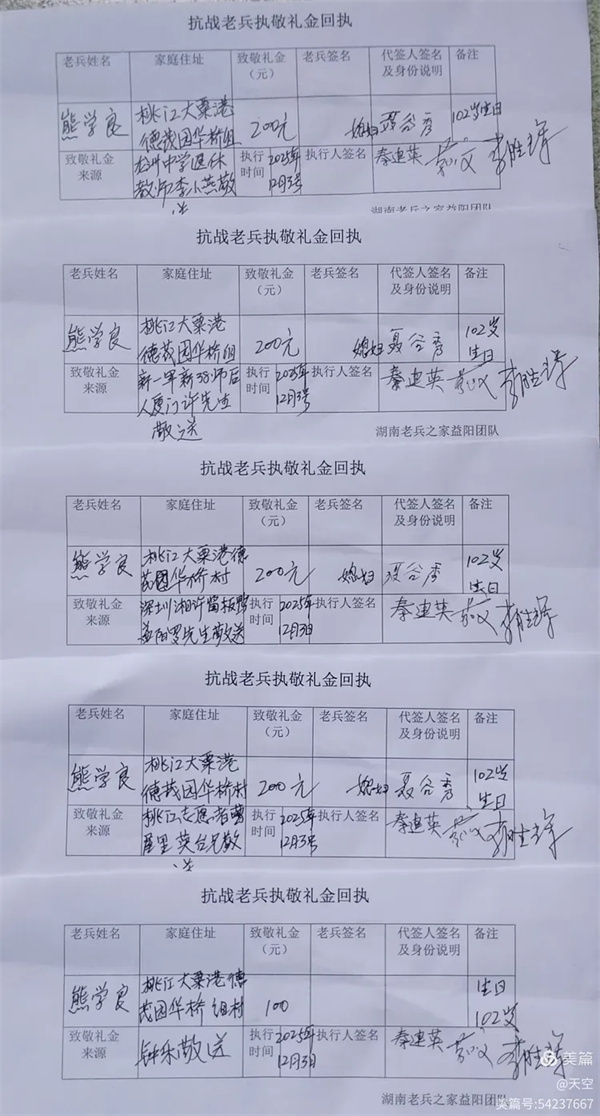 抗战老兵执敬礼金回执
老兵姓名 家庭住址 致敬礼金（元） 老兵签名 代签人签名及身份说明 备注
熊学良 桃江大粟港德茂园华桥组 200元 媳妇 聂谷秀 102岁生日
致敬礼金来源 中学退休教师李小燕敬送 执行时间 2025年12月3号 执行人签名 秦建英
湖南老兵之家益阳团队
抗战老兵执敬礼金回执
老兵姓名 家庭住址 致敬礼金（元） 老兵签名 代签人签名及身份说明 备注
熊学良 桃江大粟港德茂园华桥组 200元 媳妇 聂谷秀 102岁生日
致敬礼金来源 新一军新38师后人厦门许先生敬送 执行时间 2025年12月3号 执行人签名 秦建英
湖南老兵之家益阳团队
抗战老兵执敬礼金回执
老兵姓名 家庭住址 致敬礼金（元） 老兵签名 代签人签名及身份说明 备注
熊学良 桃江大粟港德茂园华桥村 200元 媳妇 聂谷秀 102岁生日
致敬礼金来源 深圳湘 益阳罗先生敬送 执行时间 2025年12月3日 执行人签名 秦建英
抗战老兵执敬礼金回执
老兵姓名 家庭住址 致敬礼金（元） 老兵签名 代签人签名及身份说明 备注
熊学良 桃江大粟港德茂园华桥村 200元 媳妇 聂谷秀 102岁生日
致敬礼金来源 桃江志愿者 英台兄敬送 执行时间 2025年12月3号 执行人签名 秦建英
抗战老兵执敬礼金回执
老兵姓名 家庭住址 致敬礼金（元） 老兵签名 代签人签名及身份说明 备注
熊学良 桃江大粟港德茂园华桥组村 100 生日102岁
致敬礼金来源 钟乐敬送 执行时间 2025年12月3日 执行人签名 秦建英
湖南老兵之家益阳团队
美篇
@天空
美篇号:54237667